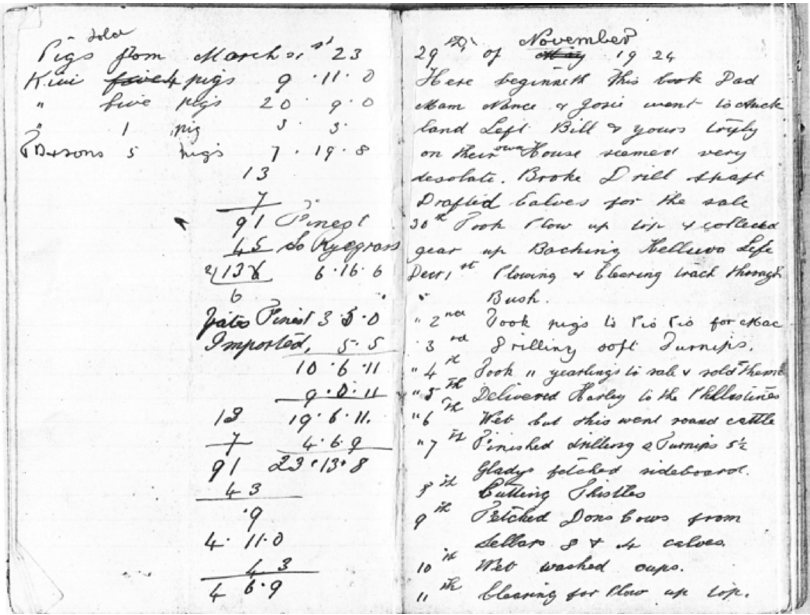 sold
Pigs from March 21st 23
Kiwi five 4 pigs 9.11.0
" five pigs 20.9.0
" 1 pig 3.3.
Parsons 5 pigs 7.19.8
13
7
91 Finest
45 So Ryegrass
2/136 6.16.6
6
Yates Finest 3 5.0
Imported, 5.5
10.6.11
9.0.11
13 19.6.11.
7 4.6.9
91 23.13.8
43
.9
4. 11.0
4 3
4 6.9
November
29th of 19 24
Here beginneth this book Dad
Mam Nance & Josie went to Auck
land Left Bill & yours truly
on their own House seemed very
desolate. Broke Drill shaft
Drafted Calves for the sale
30th Took Plow up top & collected
gear up Backing Helluva Left
Decr 1st Plowing & Clearing track through
" Bush.
" 2nd Took pigs to Pio Pio for Mac
" 3rd Drilling soft Turnips.
" 4th Took 11 yearlings to sale & sold them
" 5th Delivered Harley to the Phillistines
" 6th Wet but this went round cattle
" 7th Finished drilling S Turnips 5½
Gladys fetched sideboard.
8th Cutting Thistles
9th Fetched Dons Cows from
Sellars 8 & 4 calves
10th Wet washed cups.
11th Clearing for Plow up top.